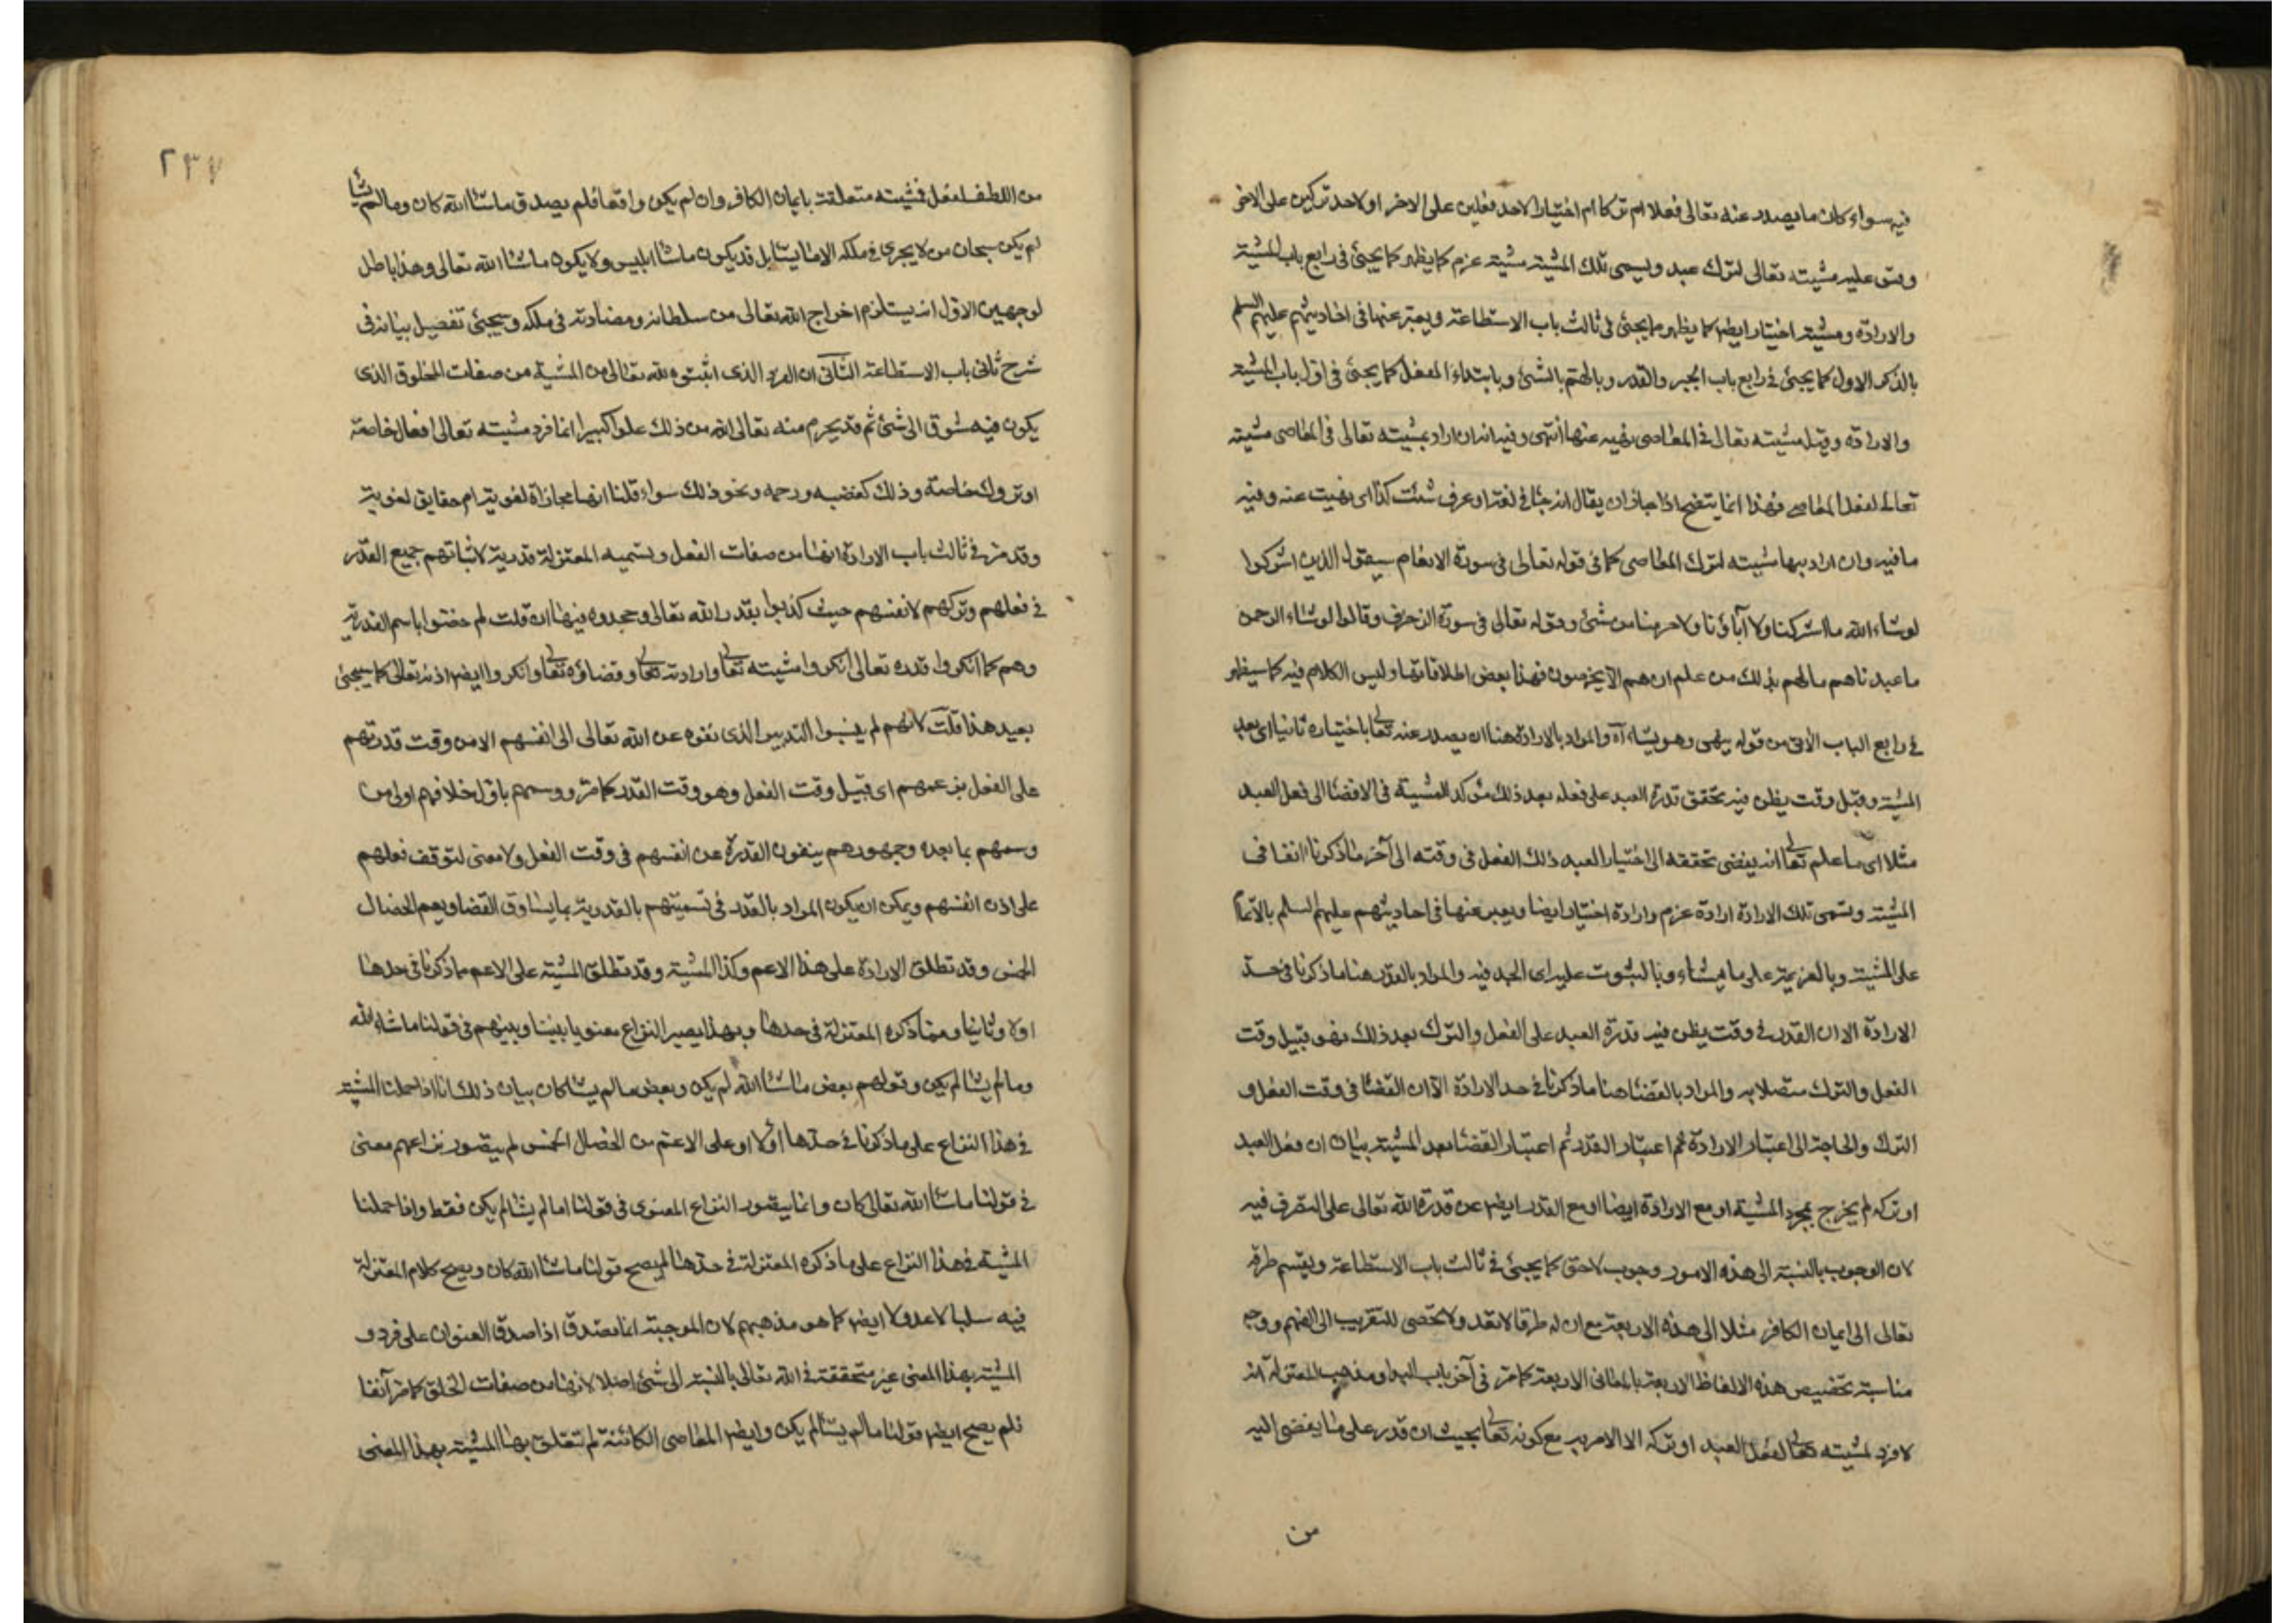 فيه سواء كان ما يصدر عنه تعالى فعلا ام تركا ام اختيارا لاحد فعلين على الاخر او لاحد تركين على الاخر
وقس عليه مشيته تعالى لترك عبد ويسمى تلك المشية مشية عزم كما يظهر كما يجيئ فى رابع باب المشية
والارادة ومشية اختيار ايضا كما يظهر مما يجيئ فى ثالث باب الاستطاعة ويعبر عنها فى احاديثهم عليهم السلم
بالذكر الاول كما يجيئ فى رابع باب الجبر والقدر وبالهتم بالشئ وبابتداء الفعل كما يجيئ فى اول باب المشية
والارادة وقيل مشيته تعالى فى المعاصى نهيه عنها انتهى وفيه انه ان اراد بمشيته تعالى فى المعاصى مشيته
تعالى لفعل المعاصى فهذا انما يتضح اذا جاز ان يقال فى لغة او عرف شئت كذا اى نهيت عنه وفيه
ما فيه وان اراد بها مشيته لترك المعاصى كما فى قوله تعالى فى سورة الانعام سيقول الذين اشركوا
لو شاء الله ما اشركنا ولا آباؤنا ولا حرمنا من شئ وقوله تعالى فى سورة الزخرف وقالوا لو شاء الرحمن
ما عبدناهم ما لهم بذلك من علم ان هم الا يخرصون فهذا بعض اطلاقاتها وليس الكلام فيه كما سيظهر
فى رابع الباب الآتى من قوله ينهى وهو يشاء آه والمراد بالارادة هنا ان يصدر عنه تعالى باختياره ثانيا اى بعد
المشية وقبل وقت يظن فيه تحقق قدرة العبد على فعله بعد ذلك مؤكد للمشية فى الافضا الى فعل العبد
مثلا اى ما علم تعالى انه يفضى تحققه الى اختيار العبد ذلك الفعل فى وقته الى آخر ما ذكرنا انفا فى
المشية وتسمى تلك الارادة ارادة عزم وارادة اختيار ايضا ويعبر عنها فى احاديثهم عليهم السلم بالاتمام
على المشية وبالعزيمة على ما يشاء وبالثبوت عليه اى الجد فيه والمراد بالقدر هنا ما ذكرنا فى حد
الارادة الا ان القدر فى وقت يظن فيه قدرة العبد على الفعل والترك بعد ذلك فهو قبيل وقت
الفعل والترك متصلا به والمراد بالقضا هنا ما ذكرنا فى حد الارادة الا ان القضا فى وقت الفعل و
الترك والحاجة الى اعتبار الارادة ثم اعتبار القدر ثم اعتبار القضا بعد المشية بيان ان فعل العبد
او تركه لم يخرج بمجرد المشية او مع الارادة ايضا او مع القدر ايضا عن قدرة الله تعالى على التصرف فيه
لان الوجوب بالنسبة الى هذه الامور وجوب لاحق كما يجيئ فى ثالث باب الاستطاعة ويقسم طرقه
تعالى الى ايمان الكافر مثلا الى هذه الاربعة مع ان له طرقا لا تعد ولا تحصى للتقريب الى الفهم ووجه
مناسبة تخصيص هذه الالفاظ الاربعة بالمعانى الاربعة كما مر فى آخر باب البداء ومذهب المعتزلة انه
لا فرد لمشيته تعالى لفعل العبد او تركه الا الامر به مع كونه تعالى بحيث ان قدر على ما يفضى اليه
من
٢٣٧
من اللطف لفعل فمشيته متعلقة بايمان الكافر وان لم يكن واقعا فلم يصدق ما شاء الله كان وما لم يشأ
لم يكن سبحان من لا يجرى فى ملكه الا ما يشاء بل قد يكون ما شاء ابليس ولا يكون ما شاء الله تعالى وهذا باطل
لوجهين الاول انه يستلزم اخراج الله تعالى من سلطانه ومضادته فى ملكه ويجيئ تفصيل بيانه فى
شرح ثانى باب الاستطاعة الثانى ان الفرد الذى اثبتوه لله تعالى من المشية من صفات المخلوق الذى
يكون فيه شوق الى شئ ثم قد يحرم منه تعالى الله من ذلك علوا كبيرا انما فرد مشيته تعالى افعال خاصة
او تروك خاصة وذلك كغضبه ورحمه ونحو ذلك سواء قلنا انها مجازاة لغوية ام حقايق لغوية
وقد مر فى ثالث باب الارادة انها من صفات الفعل وتسميه المعتزلة قدرية لاثباتهم جميع القدر
فى فعلهم وتركهم لانفسهم حيث كذبوا بقدر الله تعالى وجحدوه فيها ان قلت لم خصوا باسم القدرية
وهم كما انكروا قدره تعالى انكروا مشيته تعالى وارادته تعالى وقضاؤه تعالى وانكروا ايضا اذنه تعالى كما سيجيئ
بعيد هذا قلت لانهم لم ينسبوا التدبير الذى نفوه عن الله تعالى الى انفسهم الا من وقت قدرتهم
على الفعل بزعمهم اى قبيل وقت الفعل وهو وقت القدر كما مر ووسمهم باول خلافهم اولى من
وسمهم بما بعده وجمهورهم ينفون القدرة عن انفسهم فى وقت الفعل ولا معنى لتوقف فعلهم
على اذن انفسهم ويمكن ان يكون المراد بالقدر فى تسميتهم بالقدرية ما يساوق القضا ويعم الخصال
الخمس وقد تطلق الارادة على هذا الاعم وكذا المشية وقد تطلق المشية على الاعم مما ذكرنا فى حدها
اولا وثانيا ومما ذكره المعتزلة فى حدها وبهذا يصير النزاع معنويا بيننا وبينهم فى قولنا ما شاء الله
وما لم يشا لم يكن وقولهم بعض ما شاء الله لم يكن وبعض ما لم يشا كان بيان ذلك انا اذا حملنا المشية
فى هذا النزاع على ما ذكرنا فى حدها اولا او على الاعم من الخصال الخمس لم يتصور نزاعهم معنى
فى قولنا ما شاء الله تعالى كان وانما يتصور النزاع المعنوى فى قولنا ما لم يشا لم يكن فقط واذا حملنا
المشية فى هذا النزاع على ما ذكره المعتزلة فى حدها لم يصح قولنا ما شاء الله كان ويصح كلام المعتزلة
فيه سلبا لا عدولا ايضا كما هو مذهبهم لان الموجبة انما تصدق اذا صدق العنوان على فرد و
المشية بهذا المعنى غير متحققة فى الله تعالى بالنسبة الى شئ اصلا لانها من صفات الخلق كما مر آنفا
فلم يصح ايضا قولنا ما لم يشا لم يكن وايضا المعاصى الكائنة لم تتعلق بها المشية بهذا المعنى